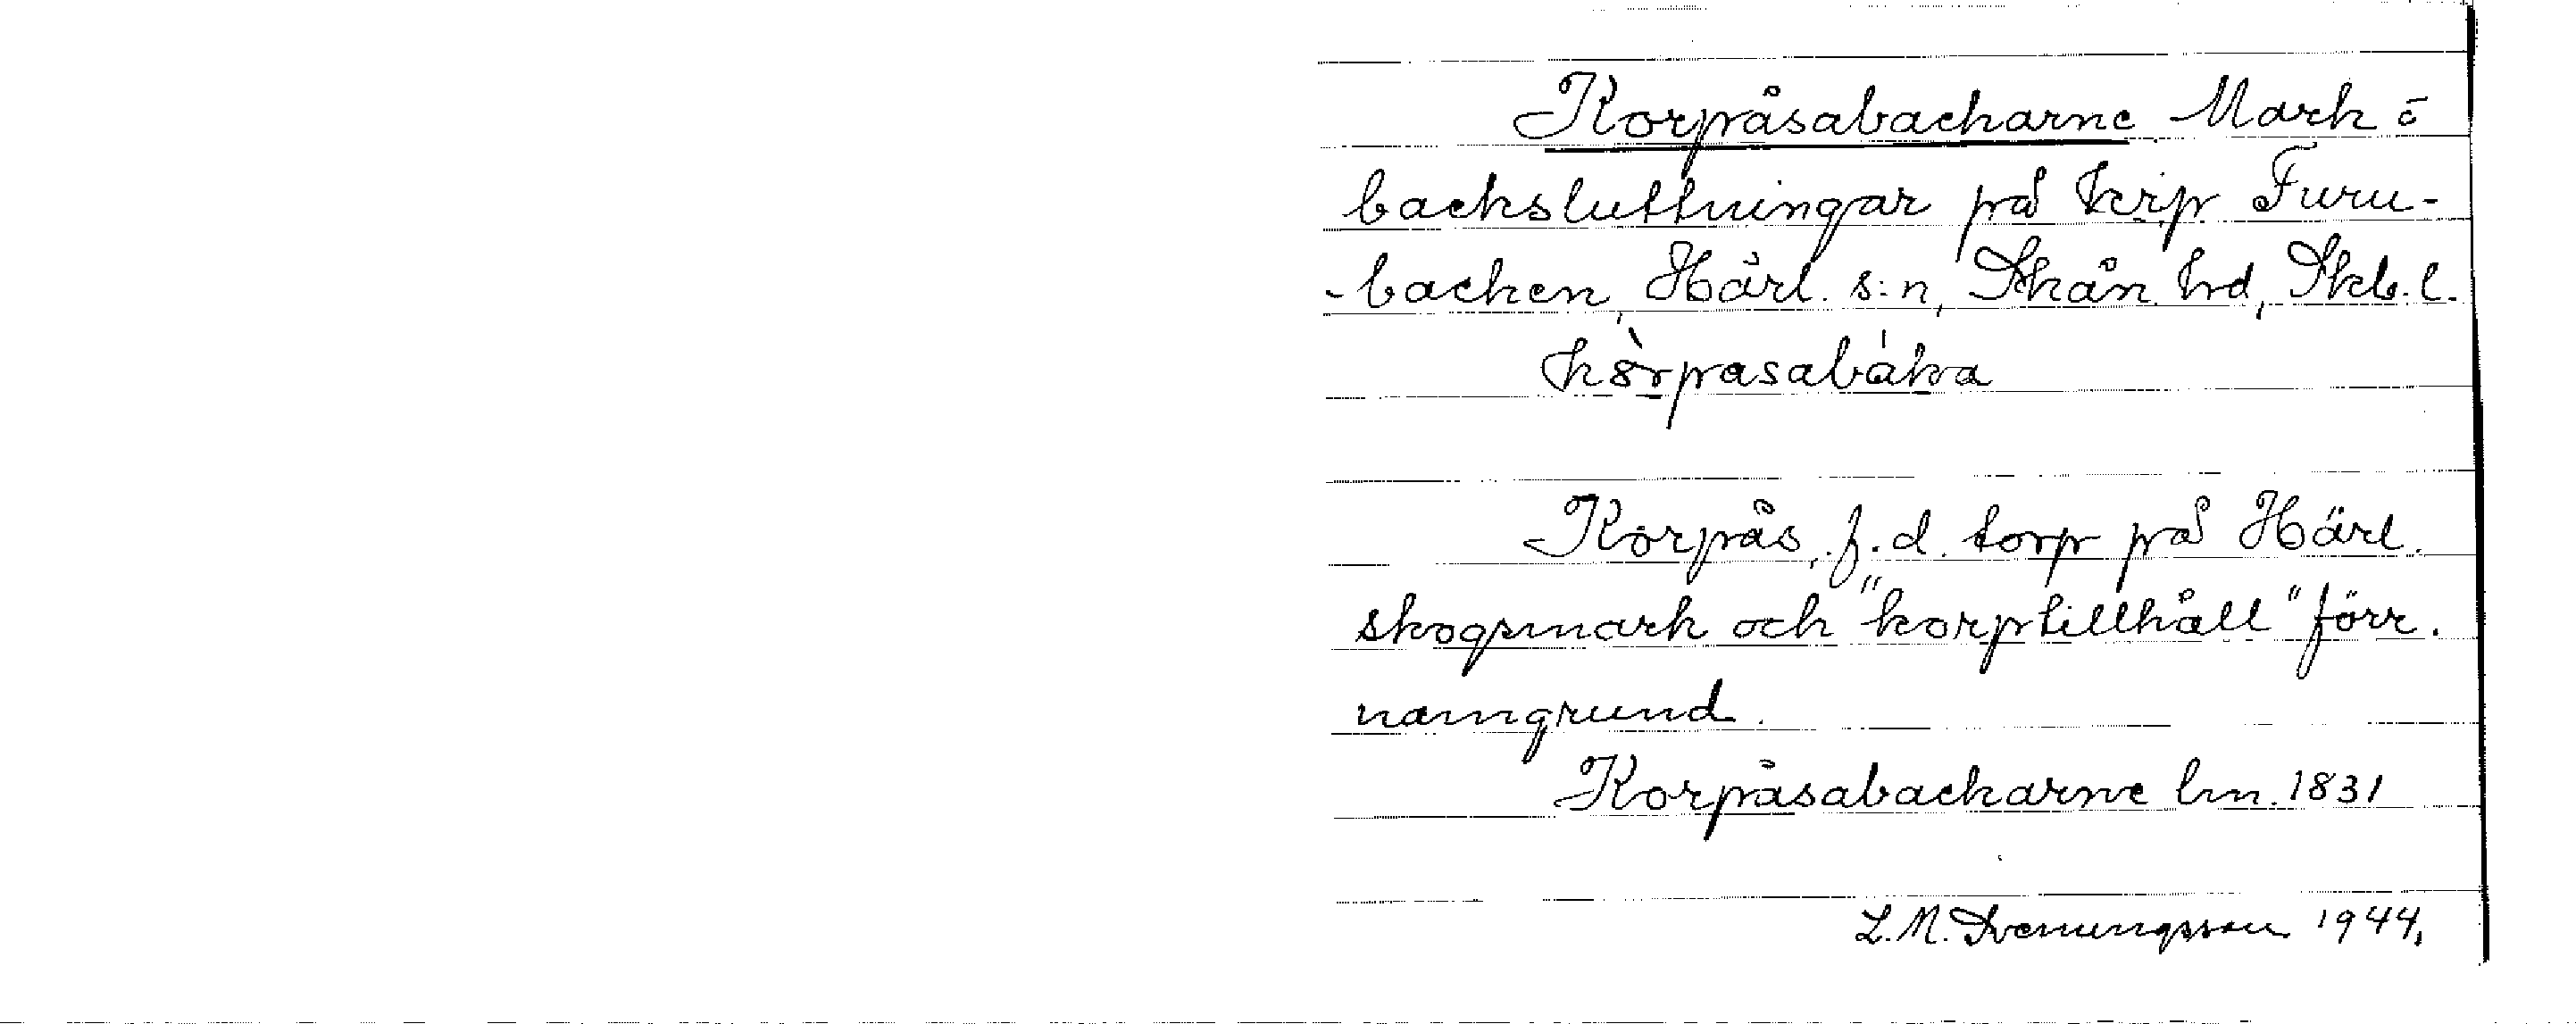 Korpåsabackarne Mark o
backsluttningar på krp Furu-
-backen, Härl. s:n, Skån. hd, Skb. l.
Korpås, f.d. torp på Härl.
skogsmark och "korptillhåll" förr.
namngrund.
Korpåsabackarne lm. 1831
L. M. Svenungsson 1944.